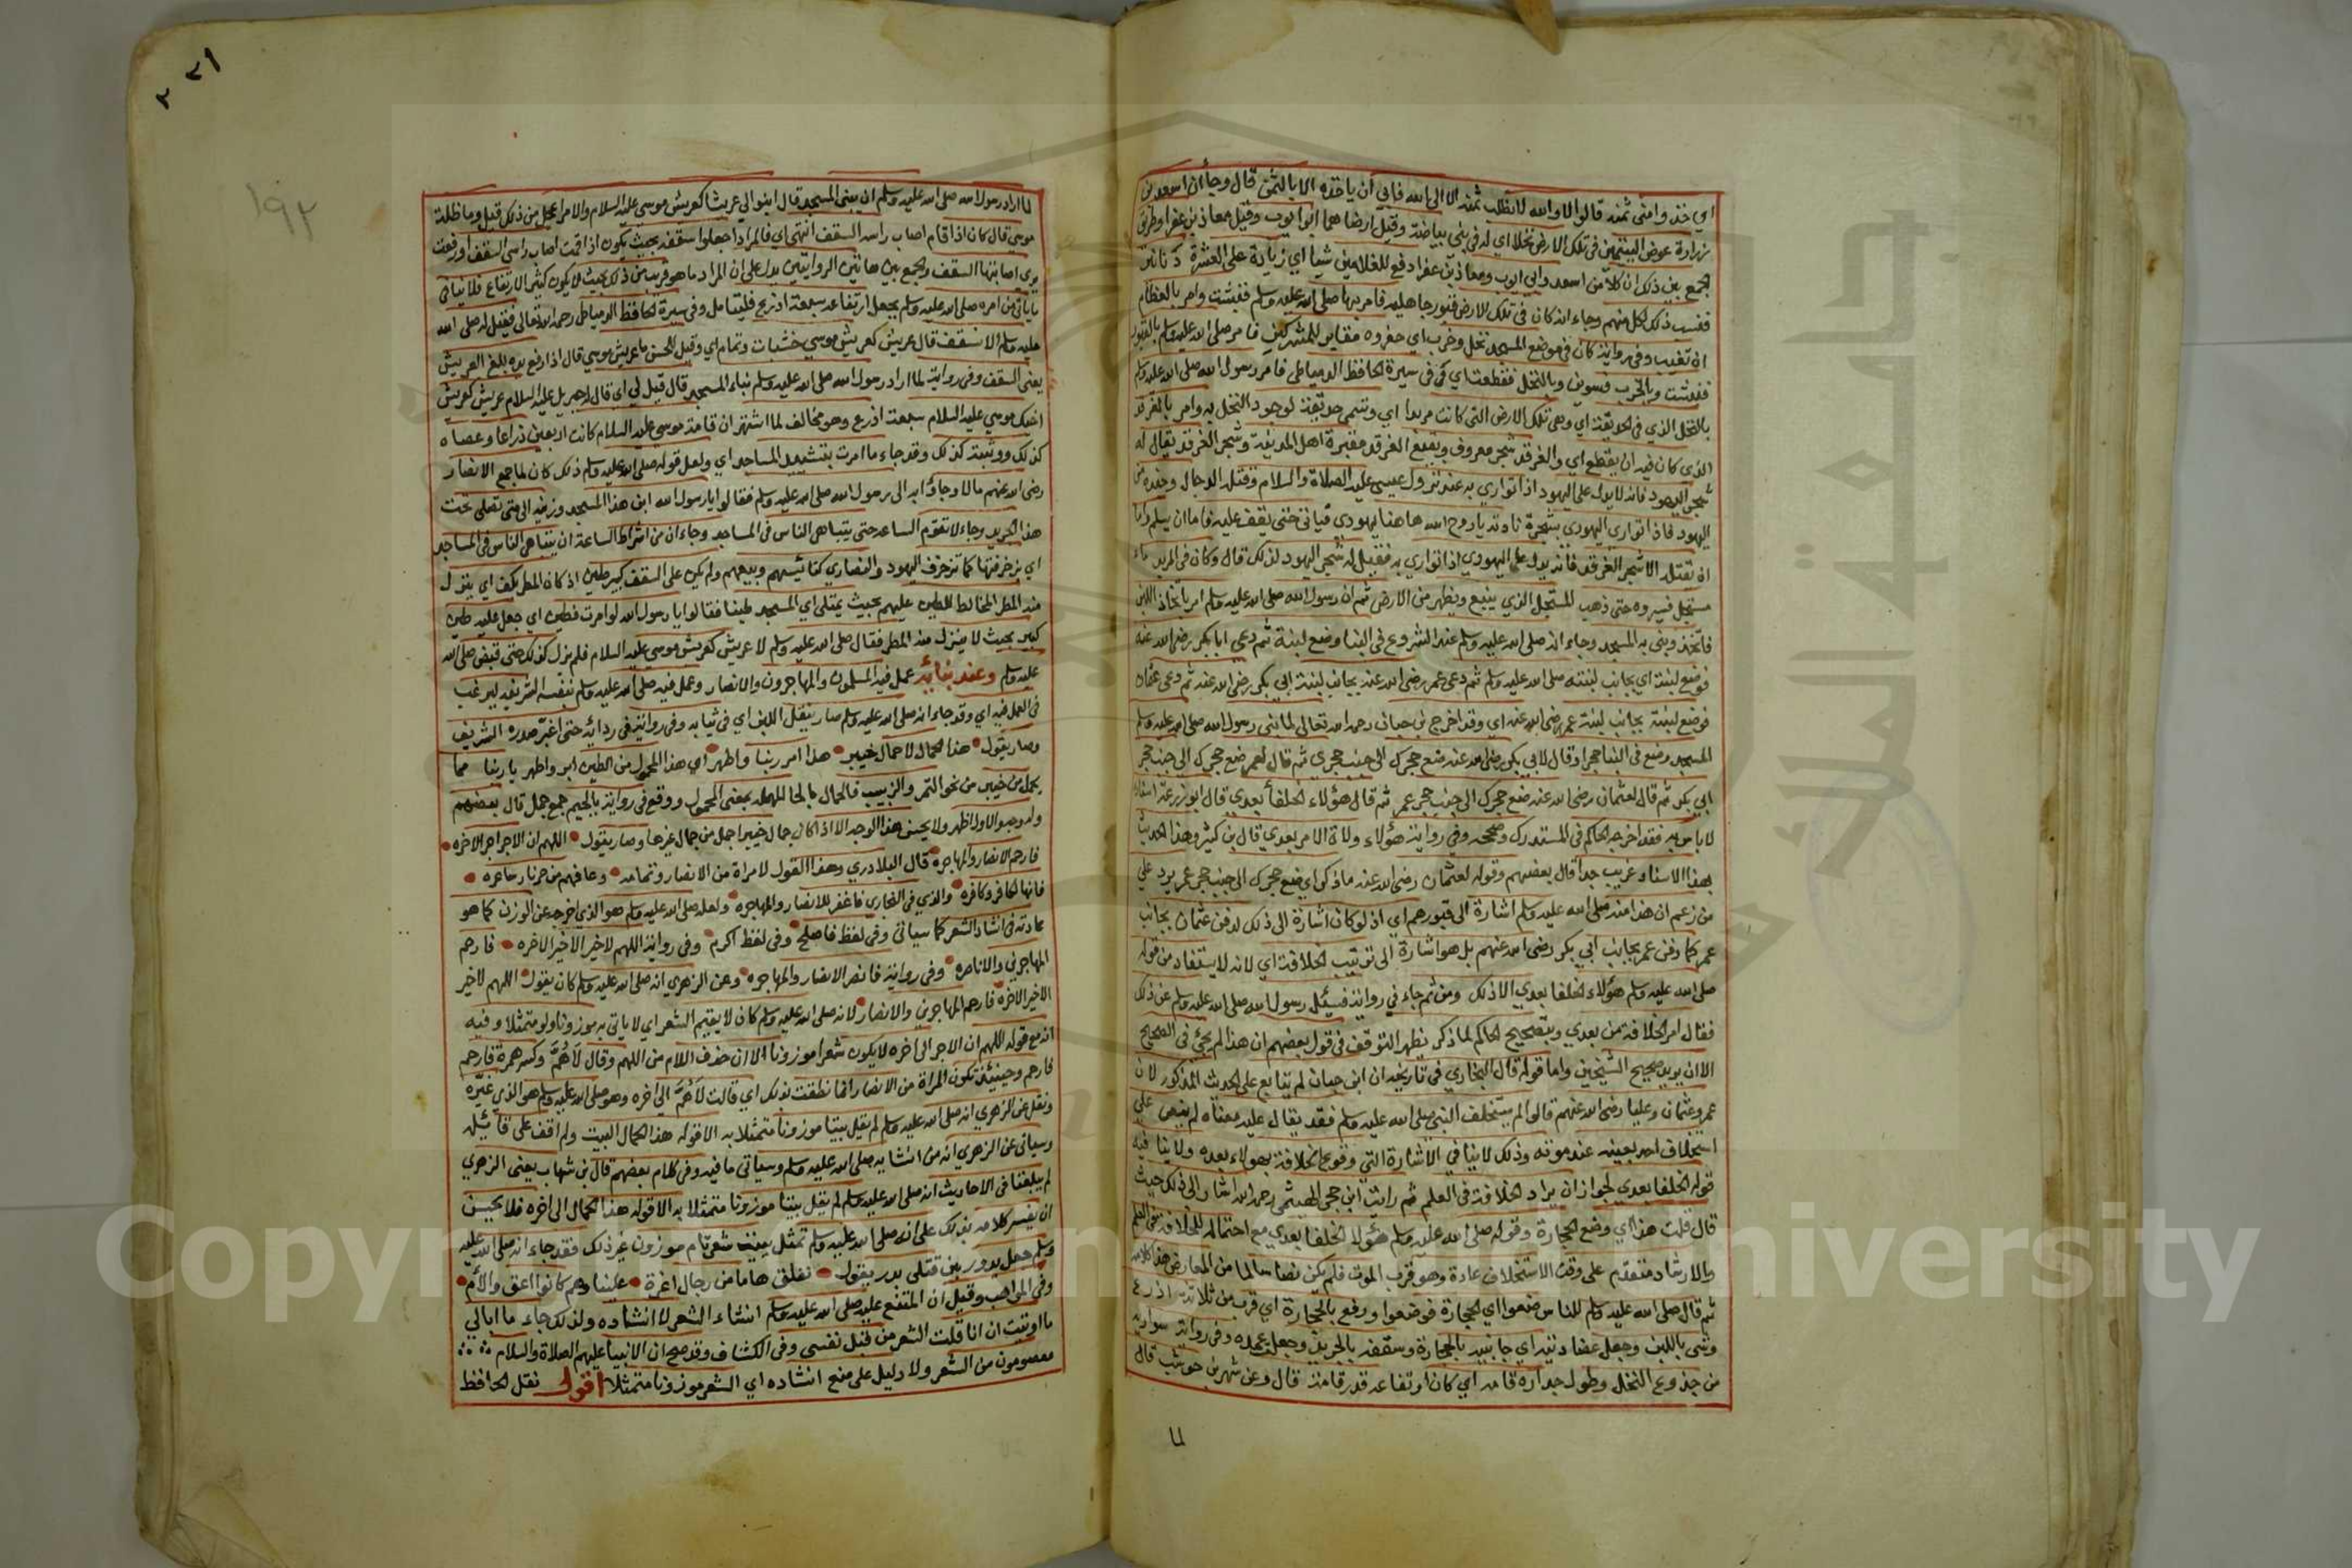 اي خذو امني ثمنه قالوا لا والله لا نطلب ثمنه الا الى الله فابي ان ياخذه الا بالثمن قال وجا ان اسعد بن
زرارة عوض اليتيمين في تلك الارض نخلا اي له في بني بياضة وقيل ارضاهما ابو ايوب وقيل معاذ بن عفرا وطريق
الجمع بين ذلك ان كلا من اسعد وابي ايوب ومعاذ بن عفرا دفع للغلامين شيا اي زيادة على العشرة دنانير
فنسب ذلك لكل منهم وجاء انه كان في تلك الارض قبور جاهلية فامر بها صلى الله عليه وسلم فنبشت وامر بالعظام
ان تغيب وفي رواية كان في موضع المسجد نخل وخرب اي حفر ومقابر للمشركين فامر صلى الله عليه وسلم بالقبور
فنبشت وبالخرب فسويت وبالنخل فقطعت اي في سيرة الحافظ الدمياطي فامر رسول الله صلى الله عليه وسلم
بالنخل الذي في الحديقة اي وهي تلك الارض التي كانت مربدا اي وتسمى حديقة لوجود النخل به وامر بالغرقد
الذي كان فيه ان يقطع اي والغرقد شجر معروف وبقيع الغرقد مقبرة اهل المدينة وشجر الغرقد يقال له
شجر اليهود فانه لا يدل على اليهود اذا تواري به عند نزول عيسى عليه الصلاة والسلام وقتل الدجال وجنده من
اليهود فاذا تواري اليهودي بشجرة نادته يا روح الله هاهنا يهودي فياتي حتى يقف عليه فاما ان يسلم واما
ان يقتل الا شجر الغرقد فانه لا يدل على اليهودي اذا تواري به فقيل له شجر اليهود لذلك قال وكان في المربد ماء
مستنجل فسيروه حتى ذهب المستنجل الذي ينبع ويظهر من الارض ثم ان رسول الله صلى الله عليه وسلم امر باتخاذ اللبن
فاتخذ وبنى به المسجد وجاء انه صلى الله عليه وسلم عند الشروع في البنا وضع لبنة ثم دعى ابا بكر رضي الله عنه
فوضع لبنة اي بجانب لبنته صلى الله عليه وسلم ثم دعى عمر رضي الله عنه بجانب لبنة ابي بكر رضي الله عنه ثم دعى عثمان
فوضع لبنة بجانب لبنة عمر رضي الله عنه اي وقد اخرج بن حبان رحمه الله تعالى لما بنى رسول الله صلى الله عليه وسلم
المسجد وضع في البنا حجرا وقال لابي بكر رضي الله عنه ضع حجرك الى جنب حجري ثم قال لعمر ضع حجرك الى جنب حجر
ابي بكر ثم قال لعثمان رضي الله عنه ضع حجرك الى جنب حجر عمر ثم قال هؤلاء الخلفا بعدي قال ابو زرعة اسناده
لا باس به فقد اخرجه الحاكم في المستدرك وصححه وفي رواية هؤلاء ولاة الامر بعدي قال بن كثير وهذا الحديث
بهذا الاسناد غريب جدا قال بعضهم وقوله لعثمان رضي الله عنه ما ذكر اي ضع حجرك الى جنب حجر عمر يرد على
من زعم ان هذا منه صلى الله عليه وسلم اشارة الى قبورهم اي اذ لو كان اشارة الى ذلك لدفن عثمان بجانب
عمر كما دفن عمر بجانب ابي بكر رضي الله عنهم بل هو اشارة الى ترتيب الخلافة اي لانه لا يستفاد من قوله
صلى الله عليه وسلم هؤلاء الخلفا بعدي الا ذلك ومن ثم جاء في رواية فسئل رسول الله صلى الله عليه وسلم عن ذلك
فقال امر الخلافة من بعدي وبتصحيح الحاكم لما ذكر يظهر التوقف في قول بعضهم ان هذا لم يجئ في الصحيح
الا ان يريد صحيح الشيخين واما قوله قال البخاري في تاريخه ان ابن حبان لم يتابع على الحديث المذكور لان
عمر وعثمان وعليا رضي الله عنهم قالوا لم يستخلف النبي صلى الله عليه وسلم فقد يقال عليه معناه لم ينص على
استخلاف احد بعينه عند موته وذلك لا ينافي الاشارة التي وقوع الخلافة بهولاء بعده ولا ينافيه
قوله الخلفا بعدي لجواز ان يراد الخلافة في العلم ثم رايت ابن حجر الهيثمي رحمه الله اشار الى ذلك حيث
قال قلت هذا اي وضع الحجارة وقوله صلى الله عليه وسلم هؤلا الخلفا بعدي مع احتماله للخلافة في العلم
والارشاد متقدم على وقت الاستخلاف عادة وهو قرب الموت فلم يكن نصا سالما من المعارض هذا كلامه
ثم قال صلى الله عليه وسلم للناس ضعوا اي الحجارة فوضعوا ورفع بالحجارة اي قرب من ثلاثة اذرع
وبنى باللبن وجعل عضادتيه اي جانبيه بالحجارة وسقفه بالجريد وجعل عمده وفي رواية سواريه
من جذوع النخل وطول جداره قامة اي كان ارتفاعه قدر قامة قال وعن شهر بن حوشب قال
لما
٢٣١
١٩٢
لما اراد رسول الله صلى الله عليه وسلم ان يبني المسجد قال ابنوا لي عريشا كعريش موسى عليه السلام والامر اعجل من ذلك قيل وما ظلة
موسى قال كان اذا قام اصاب راسه السقف انتهى اي فالمراد اجعلوا سقفه بحيث يكون اذا قمت اصاب راسي السقف او رفعت
يدي اصابتها السقف والجمع بين هاتين الروايتين يدل على ان المراد ما هو قريب من ذلك بحيث لا يكون كثير الارتفاع فلا ينافي
ما ياتي من امره صلى الله عليه وسلم بجعل ارتفاعه سبعة اذرع فليتامل وفي سيرة الحافظ الدمياطي رحمه الله تعالى فقيل له صلى الله
عليه وسلم الا نسقف قال عريش كعريش موسى خشبات وتمام اي وقيل للحسن ما عريش موسى قال اذا رفع يده بلغ العريش
يعني السقف وفي رواية لما اراد رسول الله صلى الله عليه وسلم بناء المسجد قال قيل لي اي قال له جبريل عليه السلام عريش كعريش
اخيك موسى عليه السلام سبعة اذرع وهو مخالف لما اشتهر ان قامة موسى عليه السلام كانت اربعين ذراعا وعصاه
كذلك ووثبته كذلك وقد جاء ما امرت بتشييد المساجد اي ولعل قوله صلى الله عليه وسلم ذلك كان لما جمع الانصار
رضي الله عنهم مالا وجاؤا به الى رسول الله صلى الله عليه وسلم فقالوا يا رسول الله ابن هذا المسجد وزينه الى متى تصلي تحت
هذا الجريد وجاء لا تقوم الساعة حتى يتباهى الناس في المساجد وجاء ان من اشراط الساعة ان يتباهى الناس في المساجد
اي بزخرفتها كما تزخرف اليهود والنصارى كنائسهم وبيعهم ولم يكن على السقف كبير طين اذ كان المطر يكف اي ينزل
منه المطر المخالط للطين عليهم بحيث يمتلى اي المسجد طينا فقالوا يا رسول الله لو امرت فطين اي جعل عليه طين
كبير بحيث لا ينزل منه المطر فقال صلى الله عليه وسلم لا عريش كعريش موسى عليه السلام فلم يزل كذلك حتى قبض صلى الله
عليه وسلم وعند بنائه عمل فيه المسلمون والمهاجرون والانصار وعمل فيه صلى الله عليه وسلم بنفسه الشريفة ليرغب
في العمل فيه اي وقد جاء انه صلى الله عليه وسلم صار ينقل اللبن اي في ثيابه وفي رواية في ردائه حتى اغبر صدره الشريف
وصار يقول هذا الحمال لا حمال خيبر هذا ابر ربنا واطهر اي هذا المحمول من الطين ابر واطهر يا ربنا مما
يحمل من خيبر من نحو التمر والزبيب فالحمال بالحا المهملة بمعنى المحمول ووقع في رواية بالجيم جمع جمل قال بعضهم
وله وجه والاول اظهر ولا يحسن هذا الوجه الا اذا كان جمال خيبر اجمل من جمال غيرها وصار يقول اللهم ان الاجر اجر الاخره
فارحم الانصار والمهاجره قال البلادري وهذا القول لامراة من الانصار وتمامه وعافهم من حر نار ساعره
فانها لكافر وكافره والذي في البخاري فاغفر للانصار والمهاجره ولعله صلى الله عليه وسلم هو الذي اخرجه عن الوزن كما هو
عادته في انشاد الشعر كما سياتي وفي لفظ فاصلح وفي لفظ اكرم وفي رواية اللهم لا خير الا خير الاخره فارحم
المهاجرين والاناصره وفي رواية فانصر الانصار والمهاجره وعن الزهري انه صلى الله عليه وسلم كان يقول اللهم لا خير
الا خير الاخره فارحم المهاجرين والانصار لانه صلى الله عليه وسلم كان لا يقيم الشعر اي لا ياتي به موزونا ولو متمثلا وفيه
انه مع قوله اللهم ان الاجر الى اخره لا يكون شعرا موزونا الا ان حذف اللام من اللهم وقال لاهم وكسر همزة فارحم
فارحم وحينئذ تكون المراة من الانصار انما نطقت بذلك اي قالت لاهم الى اخره وهو صلى الله عليه وسلم هو الذي غيره
ونقل عن الزهري انه صلى الله عليه وسلم لم يقل بيتا موزونا متمثلا به الا قوله هذا الحمال البيت ولم اقف على قائله
وسياتي عن الزهري انه من انشايه صلى الله عليه وسلم وسياتي ما فيه وفي كلام بعضهم قال بن شهاب يعني الزهري
لم يبلغنا في الاحاديث انه صلى الله عليه وسلم لم يقل بيتا موزونا متمثلا به الا قوله هذا الحمال الى اخره فلا يحسن
ان يفسر كلامه بذلك على انه صلى الله عليه وسلم تمثل ببيت شعر تام موزون غير ذلك فقد جاء انه صلى الله عليه
وسلم جعل يدور بين قتلى بدر يقول نفلق هاما من رجال اعزة علينا وهم كانوا اعق والأم
وفي المواهب وقيل ان الممتنع عليه صلى الله عليه وسلم انشاء الشعر لا انشاده ولذلك جاء ما ابالي
ما اوتيت ان انا قلت الشعر من قبل نفسي وفي الكشاف وقد صح ان الانبيا عليهم الصلاة والسلام
معصومون من الشعر ولا دليل على منع انشاده اي الشعر موزونا متمثلا اقول نقل الحافظ
جامعة الملك سعود
Copyright © King Saud University